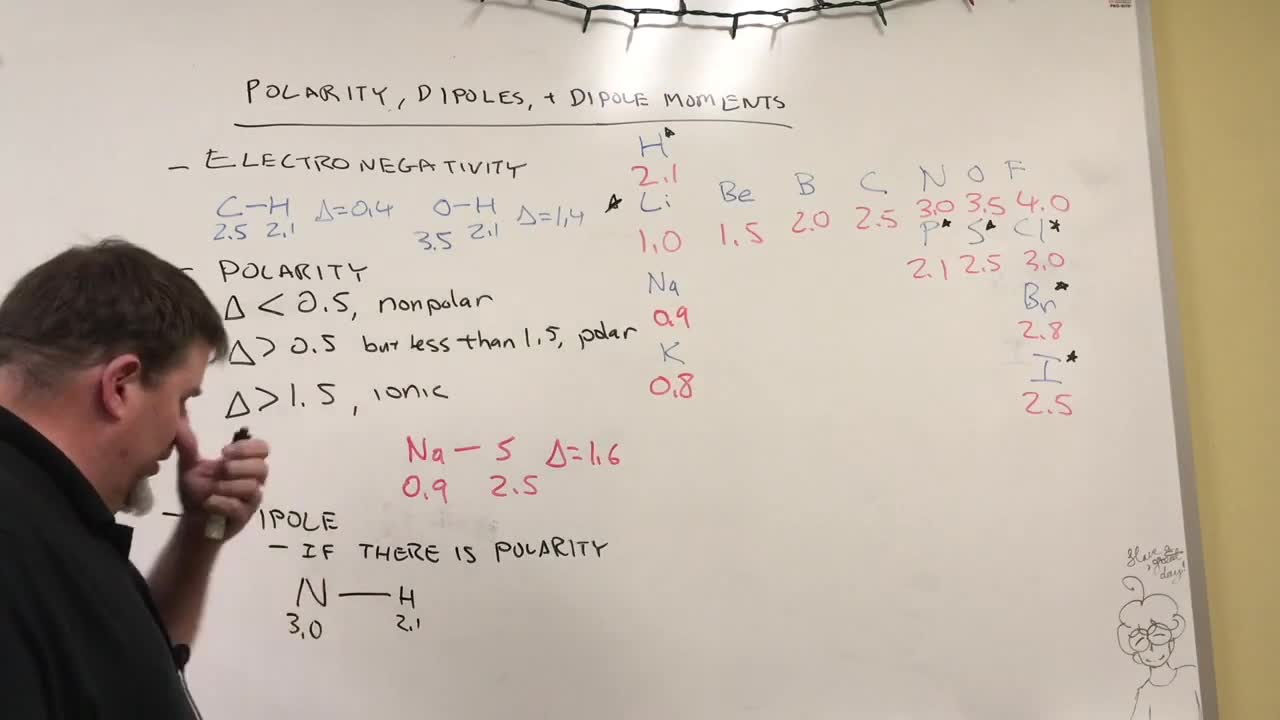 POLARITY, DIPOLES, + DIPOLE MOMENTS
- ELECTRONEGATIVITY
C-H Δ=0.4 O-H Δ=1.4
2.5 2.1 3.5 2.1
H*
2.1
*Li Be B C N O F
1.0 1.5 2.0 2.5 3.0 3.5 4.0
P* S* Cl*
2.1 2.5 3.0
Na Br*
0.9 2.8
K I*
0.8 2.5
- POLARITY
Δ < 0.5, nonpolar
Δ > 0.5 but less than 1.5, polar
Δ > 1.5, ionic
Na - S Δ=1.6
0.9 2.5
- IPOLE
- IF THERE IS POLARITY
N — H
3.0 2.1
Have a
day!